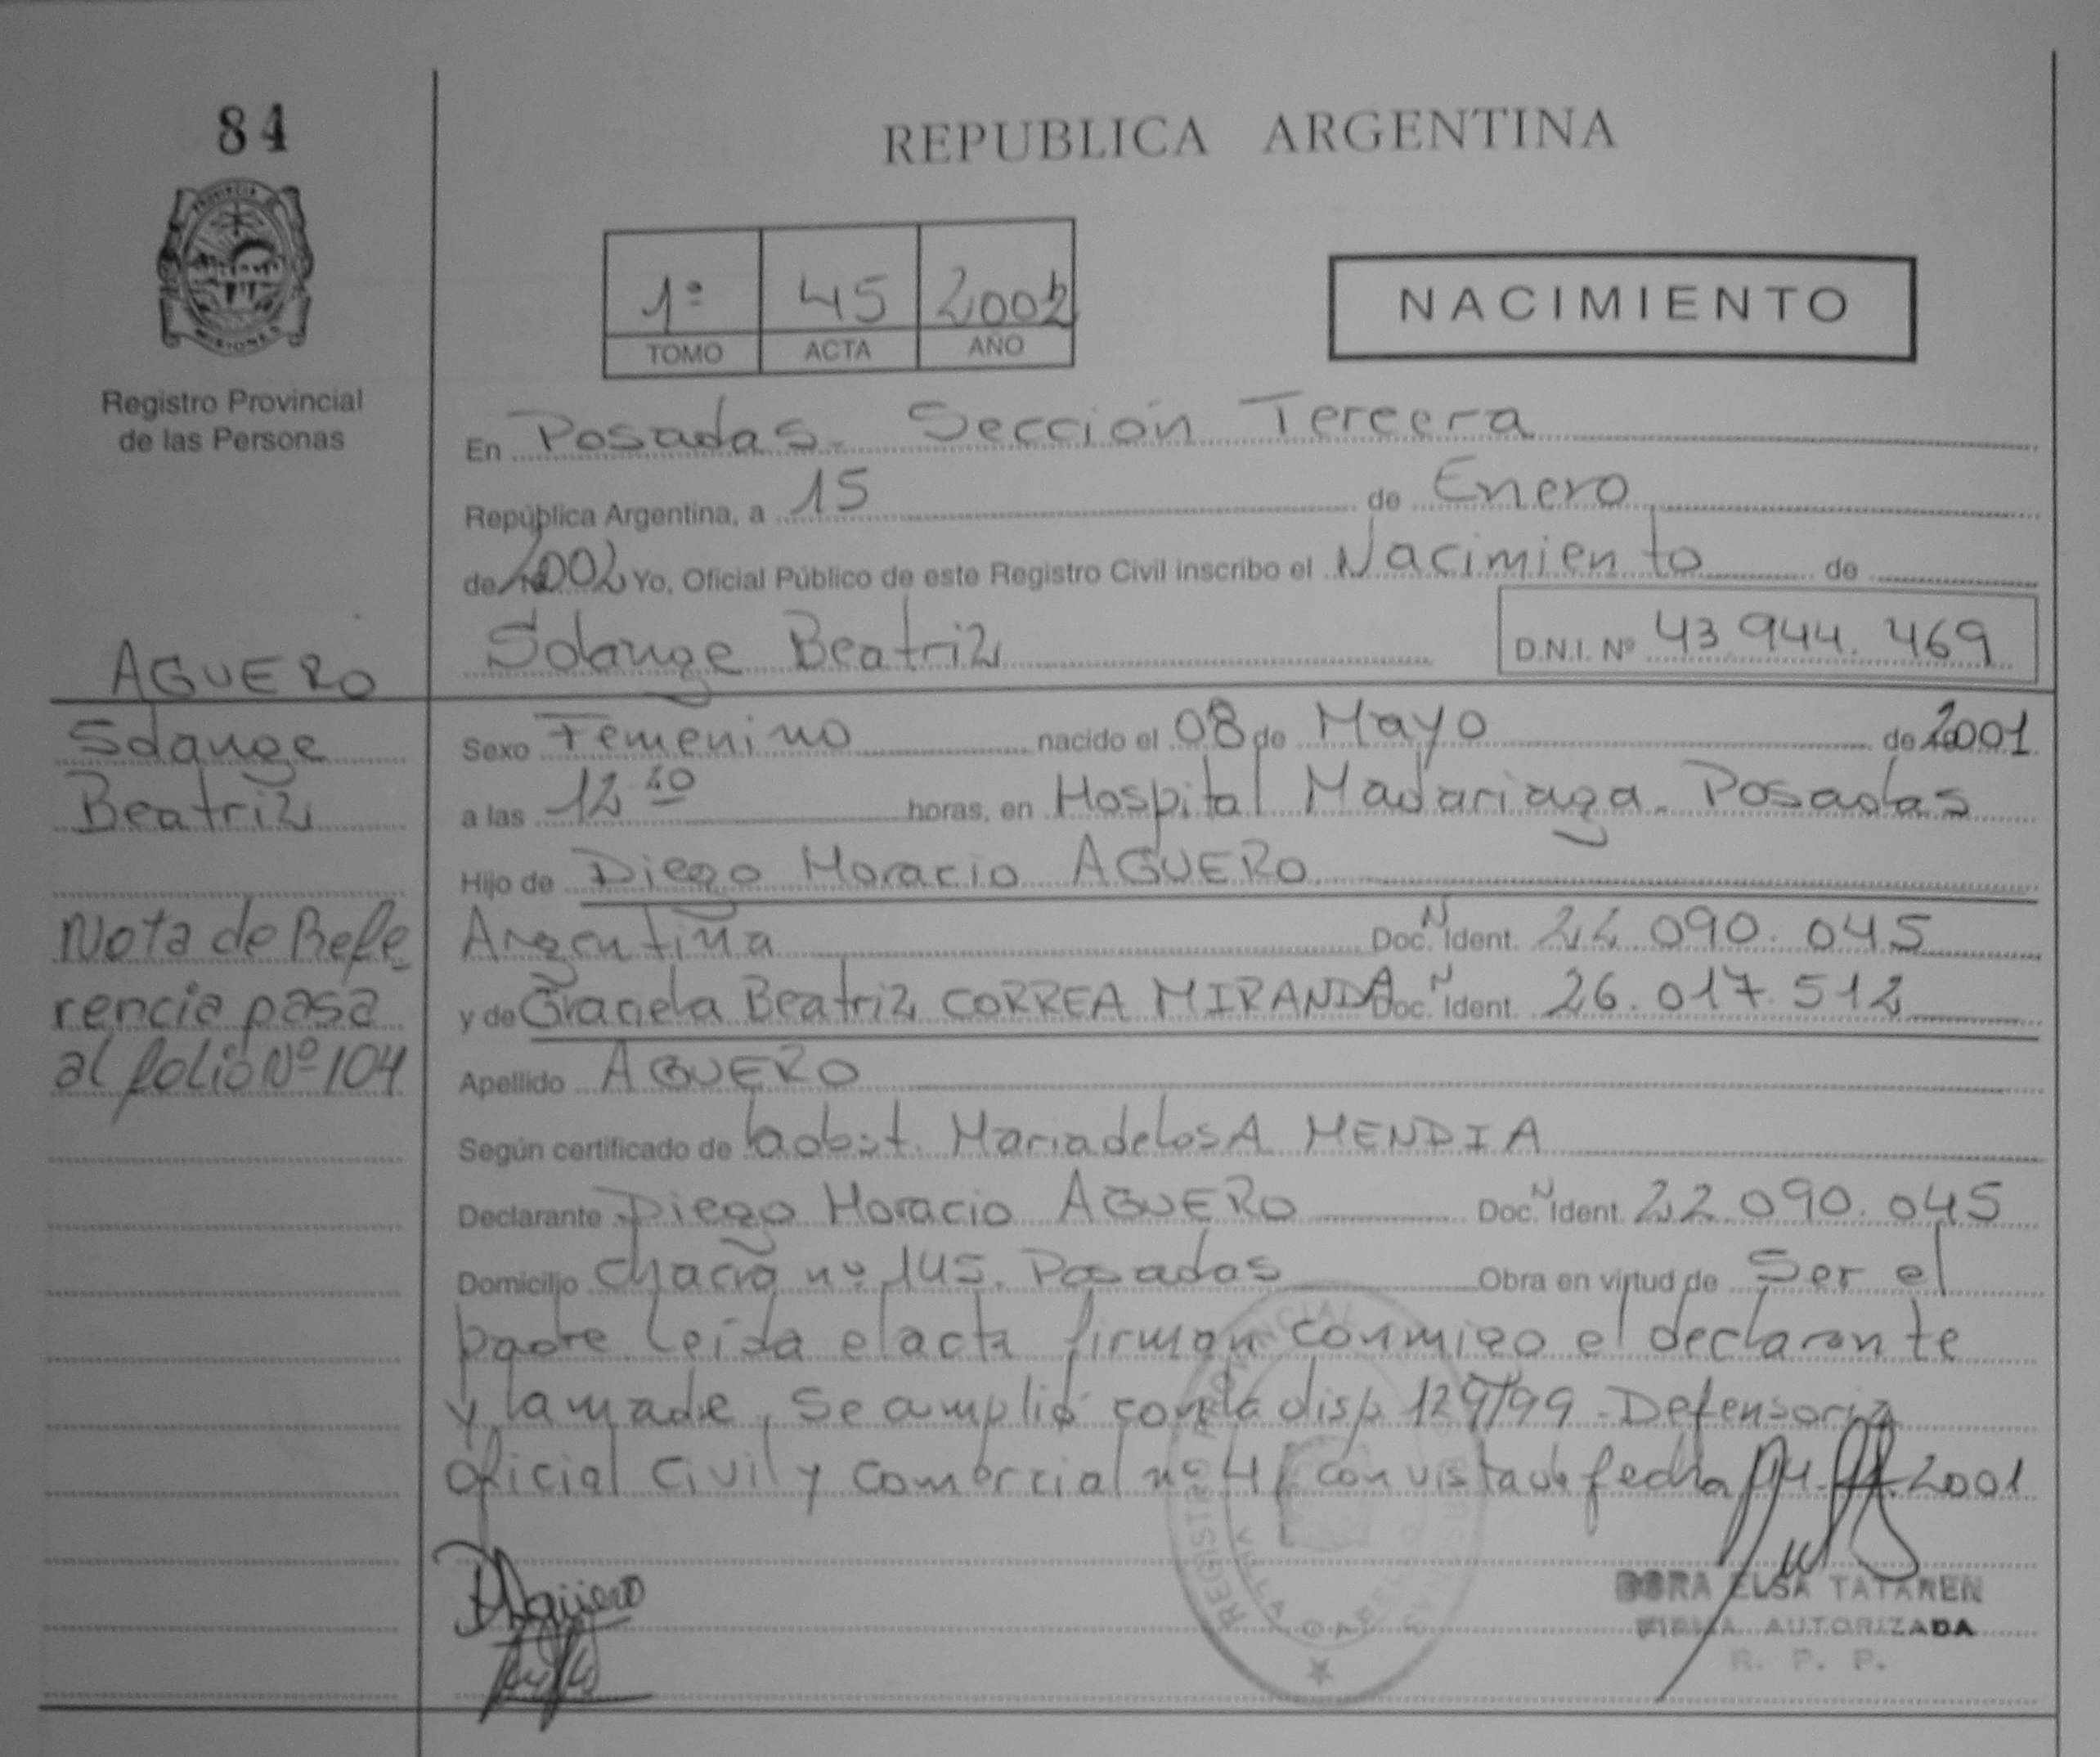 84
REPUBLICA ARGENTINA
PROVINCIA DE MISIONES
1º 45 2002
TOMO ACTA AÑO
NACIMIENTO
Registro Provincial
de las Personas
En Posadas. Sección Tercera
República Argentina, a 15 de Enero
de 2002 Yo, Oficial Público de este Registro Civil inscribo el Nacimiento de
Solange Beatriz D.N.I. Nº 43.944.469
AGUERO
Solange
Beatriz
Sexo Femenino nacido el 08 de Mayo de 2001
a las 12 40 horas, en Hospital Madariaga. Posadas
Hijo de Diego Horacio AGUERO
Nota de Refe
rencia pasa
al folio Nº 104
Argentina Doc. N Ident. 22.090.045
y de Graciela Beatriz CORREA MIRANDA Doc. N Ident. 26.017.512
Apellido AGUERO
Según certificado de la obst. Maria de los A MENDIA
Declarante Diego Horacio AGUERO Doc. N Ident. 22.090.045
Domicilio chacra nº 145. Posadas Obra en virtud de Ser el
padre. Leída el acta firman conmigo el declarante
y la madre, Se amplió con la disp. 129/99 - Defensoria
oficial Civil y Comercial nº 4, con vista de fecha 2001
DAgüero
REGISTRO PROVINCIAL DE LAS PERSONAS
VILLA CABELLO
DORA ELSA TATAREN
FIRMA AUTORIZADA
R. P. P.